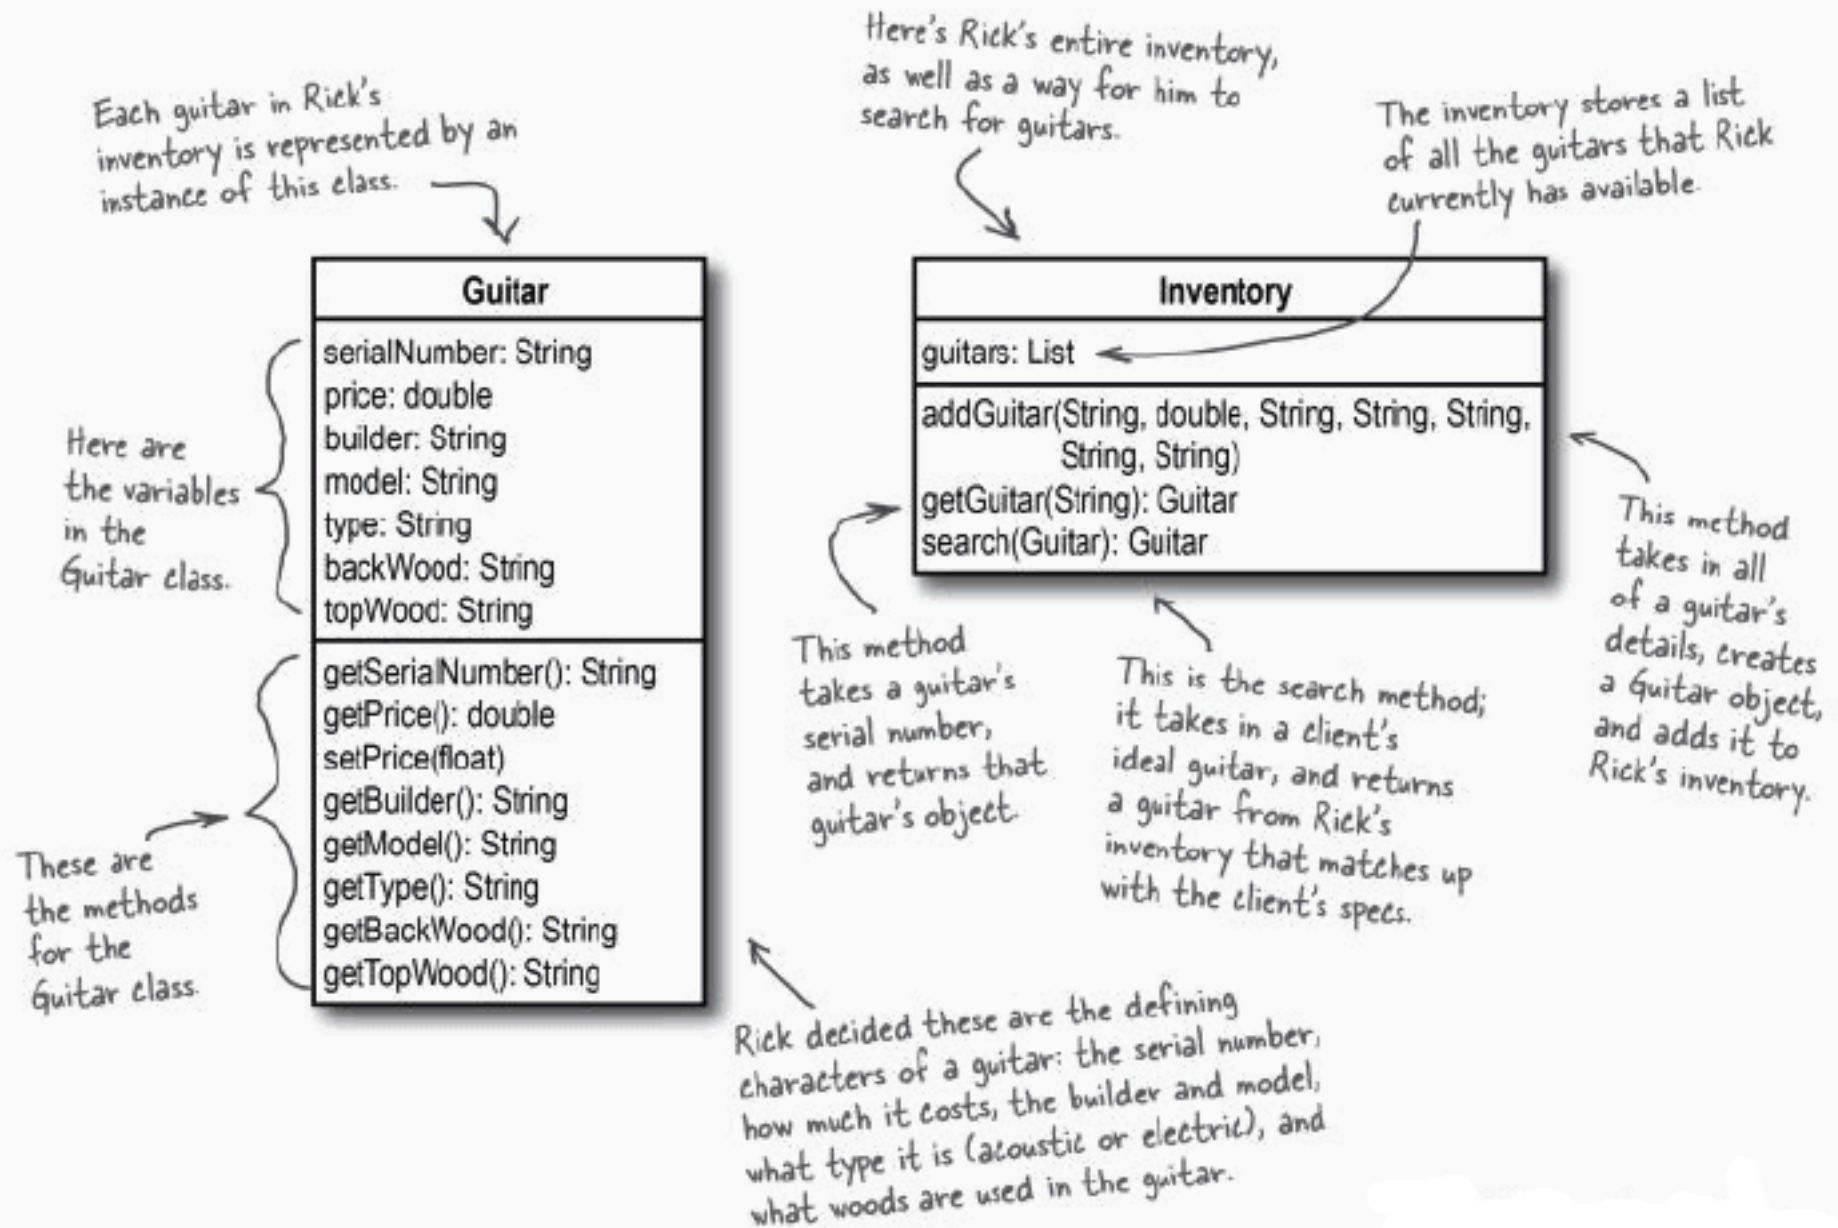 Here's Rick's entire inventory,
as well as a way for him to
search for guitars.
Each guitar in Rick's
inventory is represented by an
instance of this class.
The inventory stores a list
of all the guitars that Rick
currently has available.
Guitar
serialNumber: String
price: double
builder: String
model: String
type: String
backWood: String
topWood: String
getSerialNumber(): String
getPrice(): double
setPrice(float)
getBuilder(): String
getModel(): String
getType(): String
getBackWood(): String
getTopWood(): String
Here are
the variables
in the
Guitar class.
These are
the methods
for the
Guitar class.
Inventory
guitars: List
addGuitar(String, double, String, String, String,
String, String)
getGuitar(String): Guitar
search(Guitar): Guitar
This method
takes a guitar's
serial number,
and returns that
guitar's object.
This is the search method;
it takes in a client's
ideal guitar, and returns
a guitar from Rick's
inventory that matches up
with the client's specs.
This method
takes in all
of a guitar's
details, creates
a Guitar object,
and adds it to
Rick's inventory.
Rick decided these are the defining
characters of a guitar: the serial number,
how much it costs, the builder and model,
what type it is (acoustic or electric), and
what woods are used in the guitar.